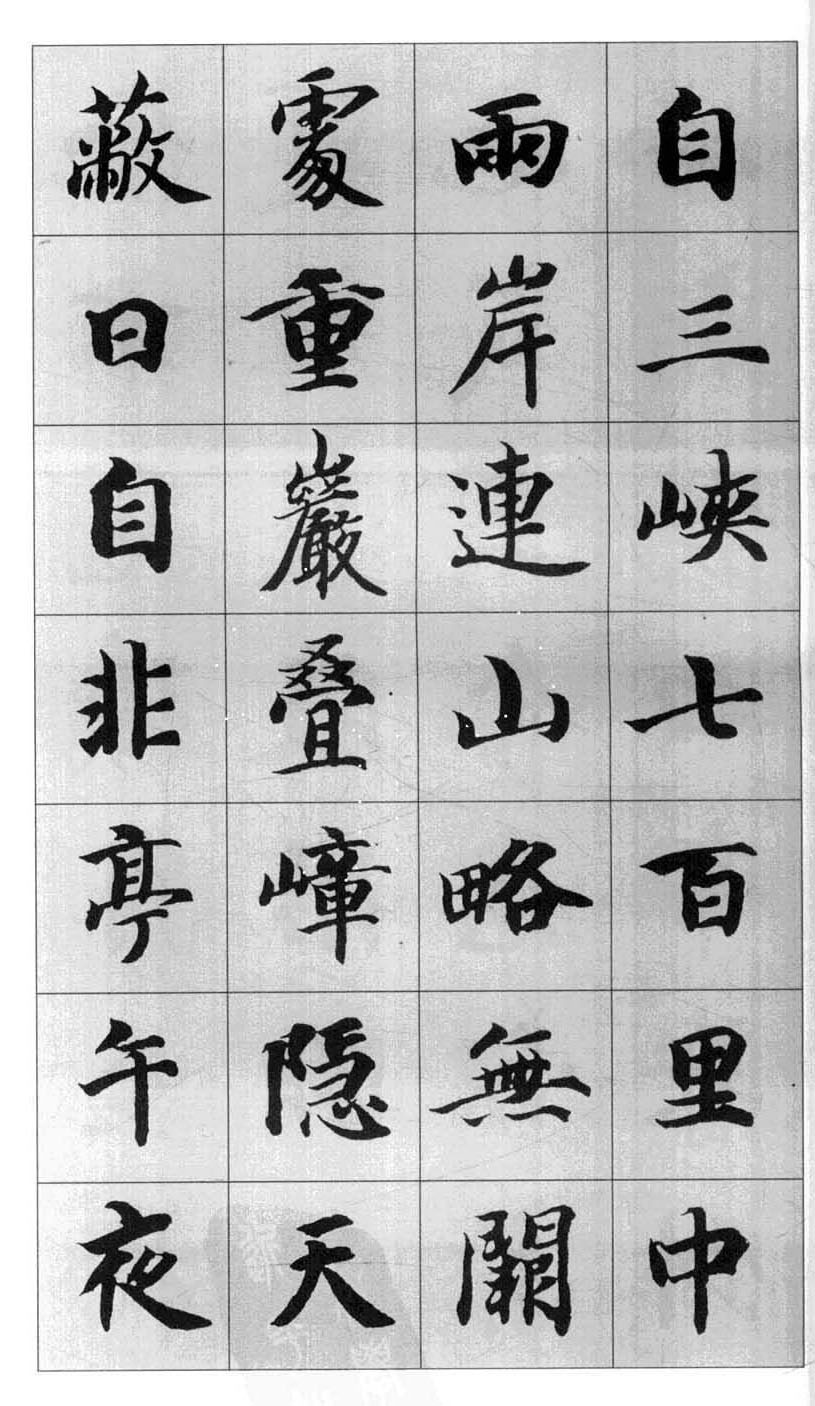 自三峽七百里中
兩岸連山略無闕
處重巖叠嶂隐天
蔽日自非亭午夜